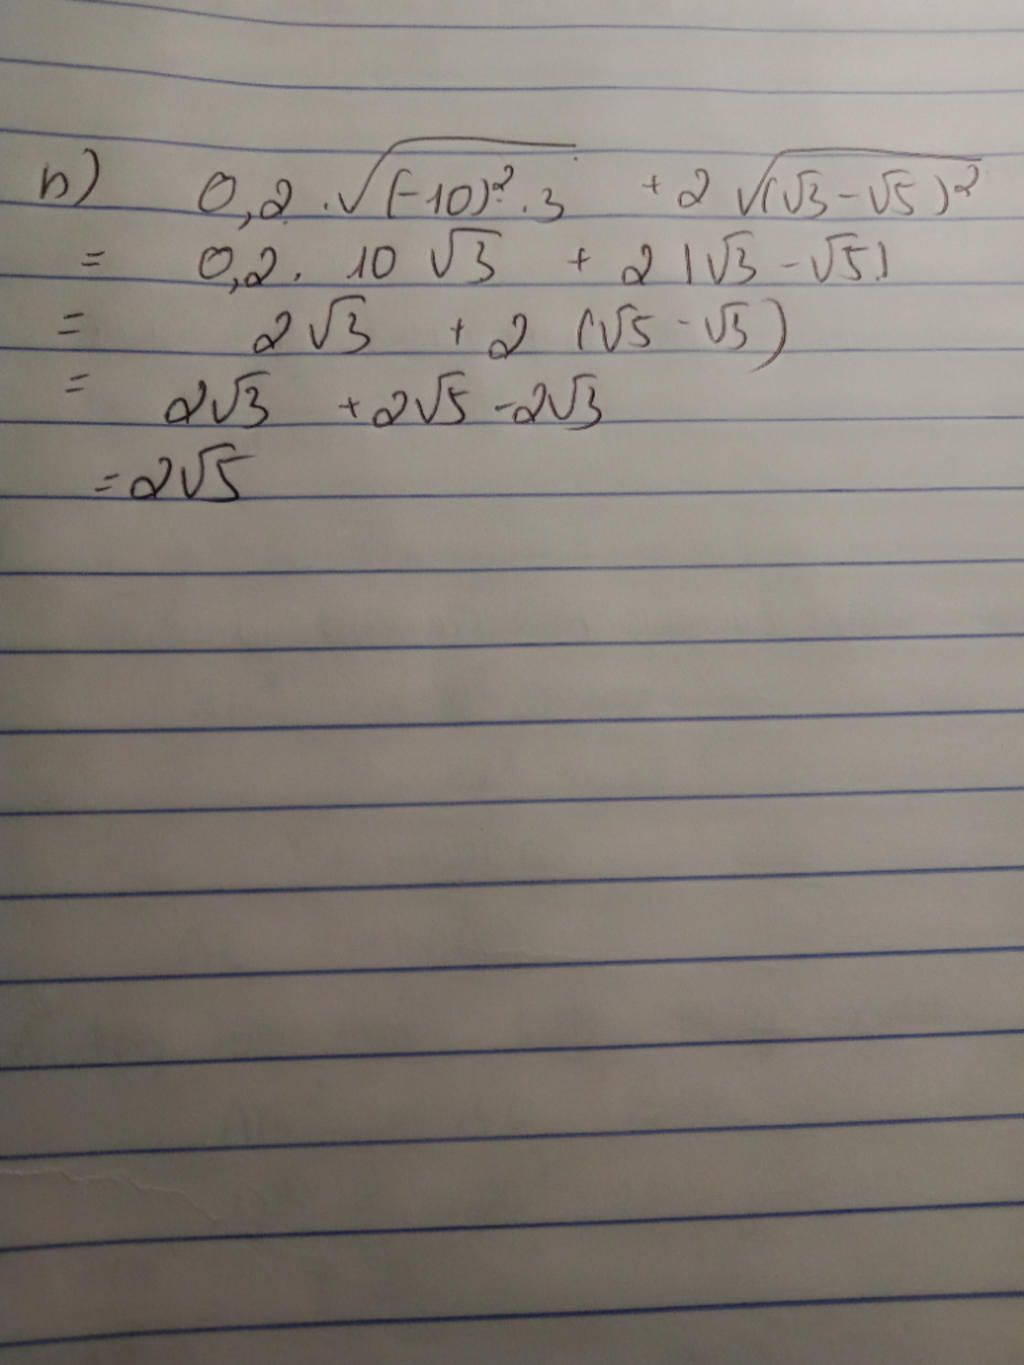 b) 0,2 . √(-10)² . 3 + 2 √(√3 - √5)²
= 0,2 . 10 √3 + 2 |√3 - √5|
= 2√3 + 2 (√5 - √3)
= 2√3 + 2√5 - 2√3
= 2√5